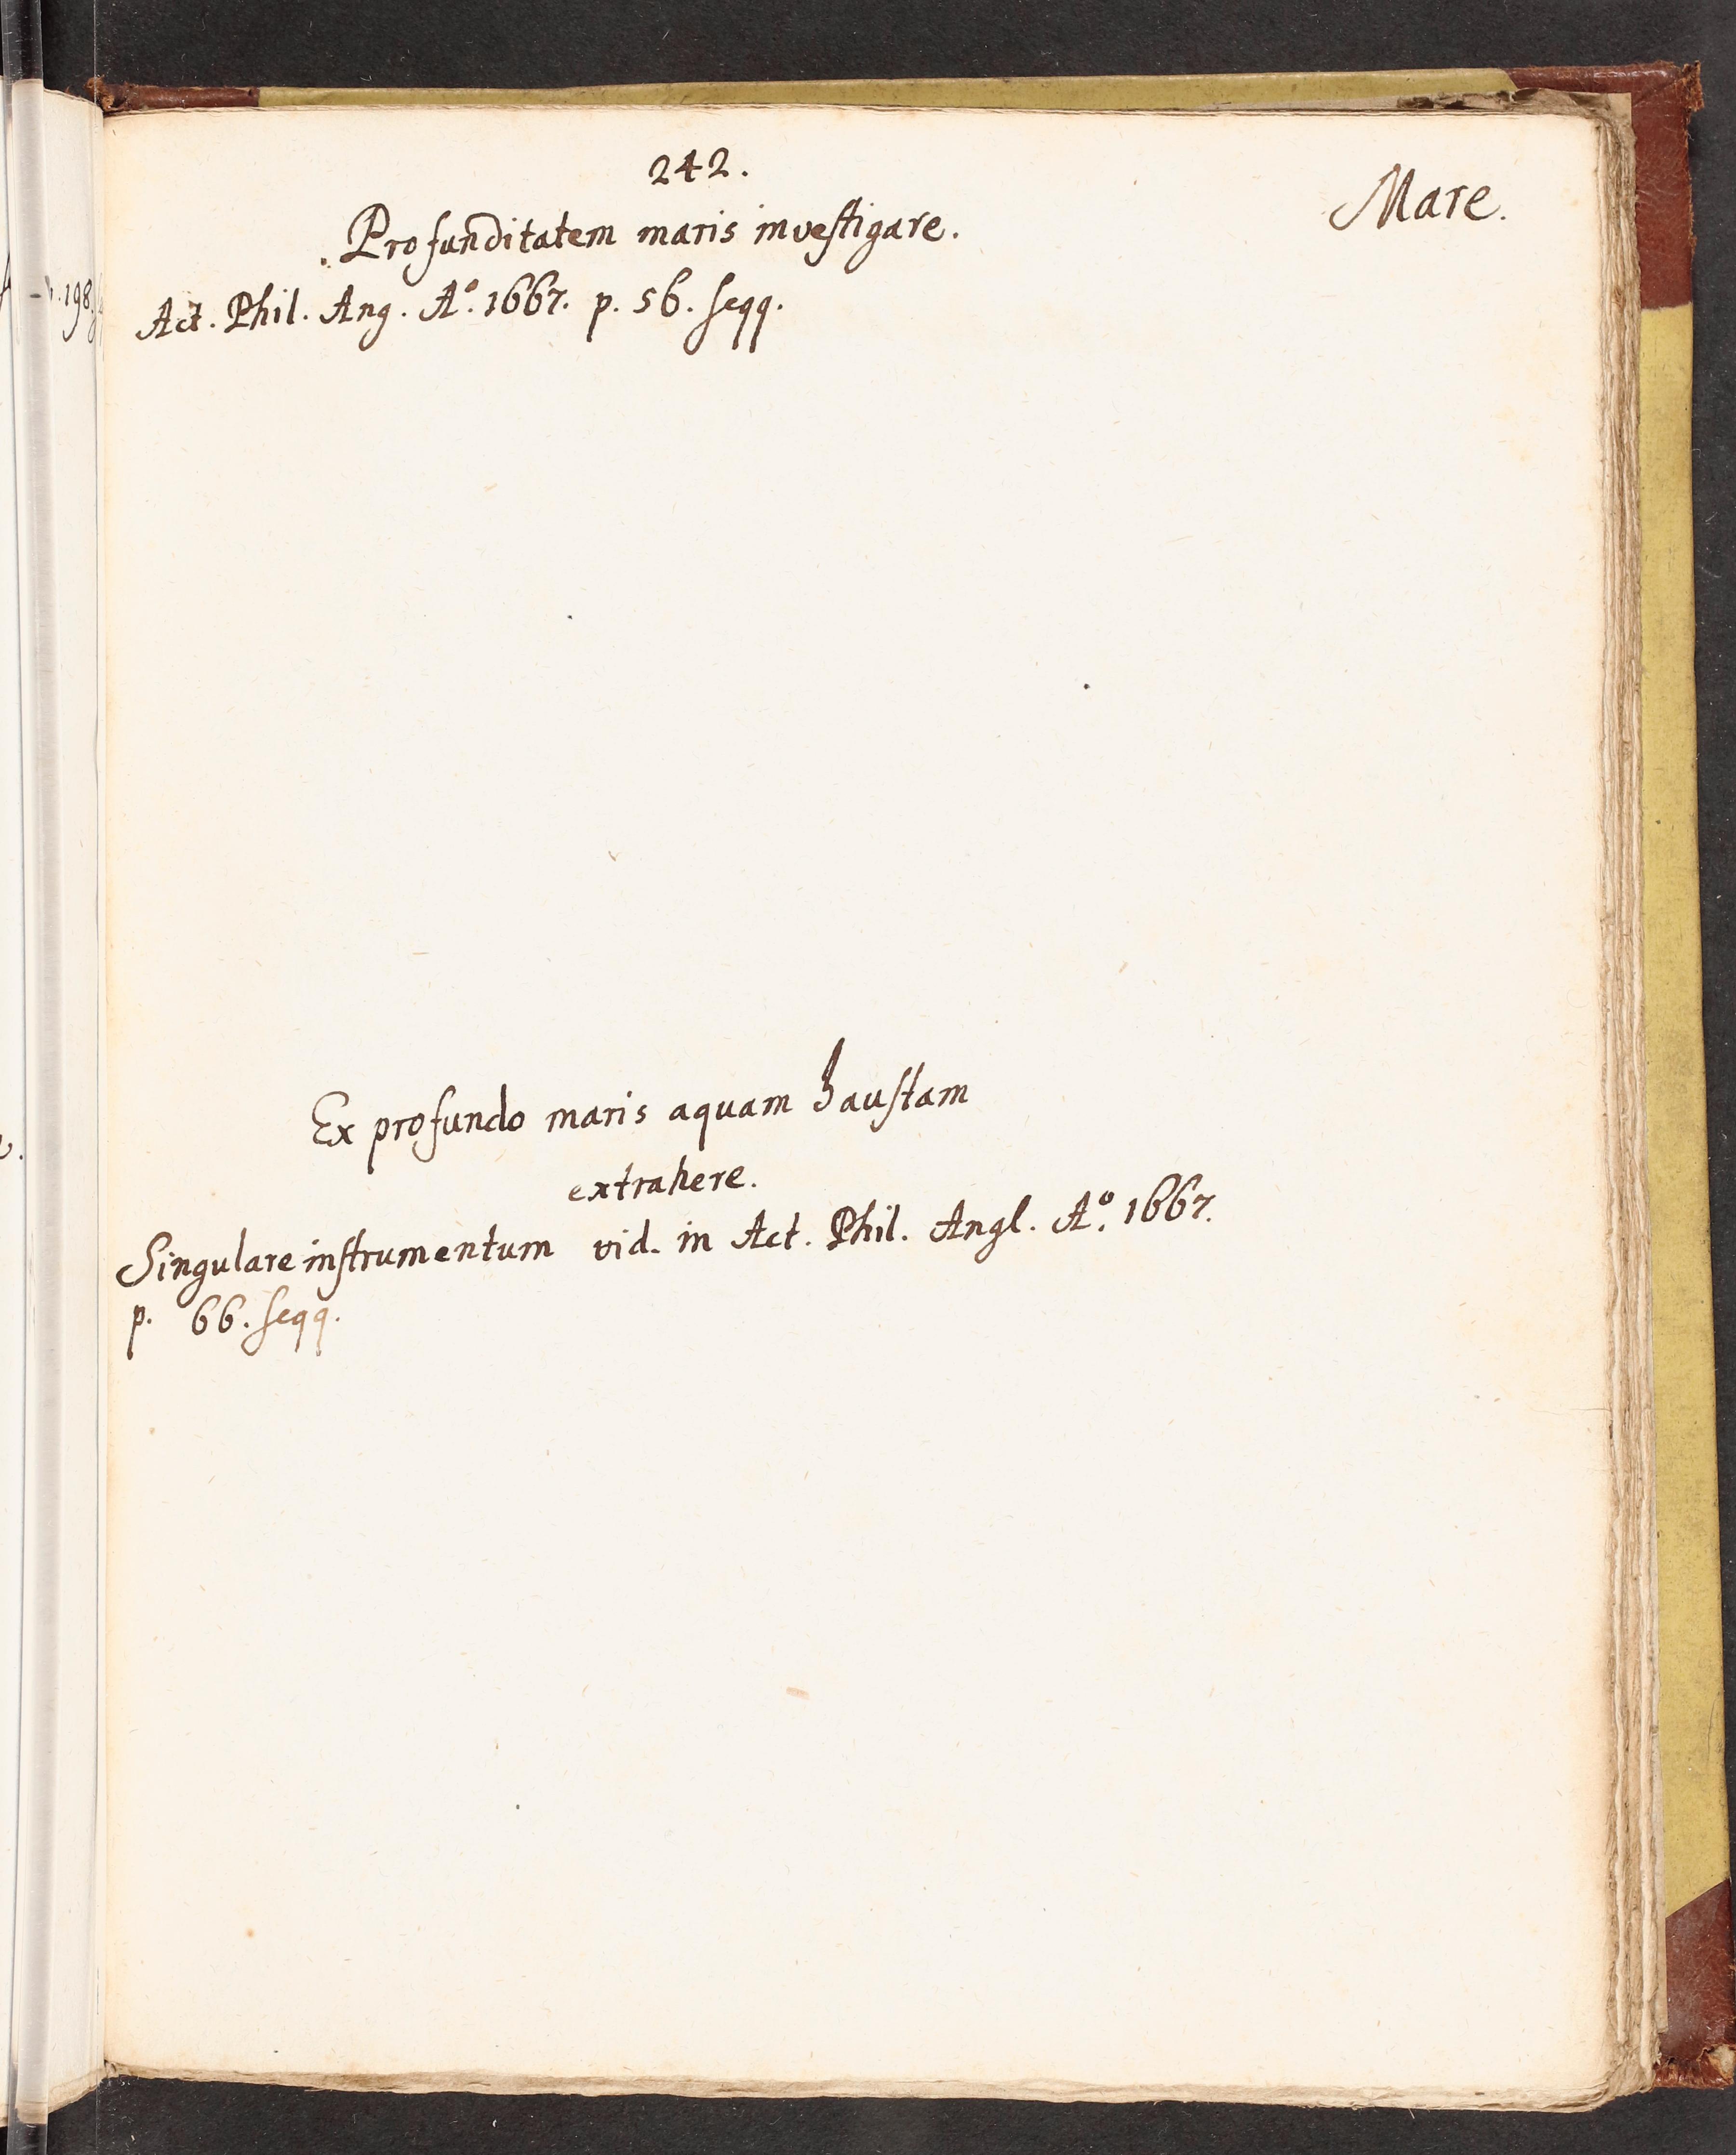 242.
Mare.
Profunditatem maris investigare.
Act. Phil. Ang. Aº. 1667. p. 56. seqq.
Ex profundo maris aquam haustam
extrahere.
Singulare instrumentum vid. in Act. Phil. Angl. Aº. 1667.
p. 66. seqq.
198